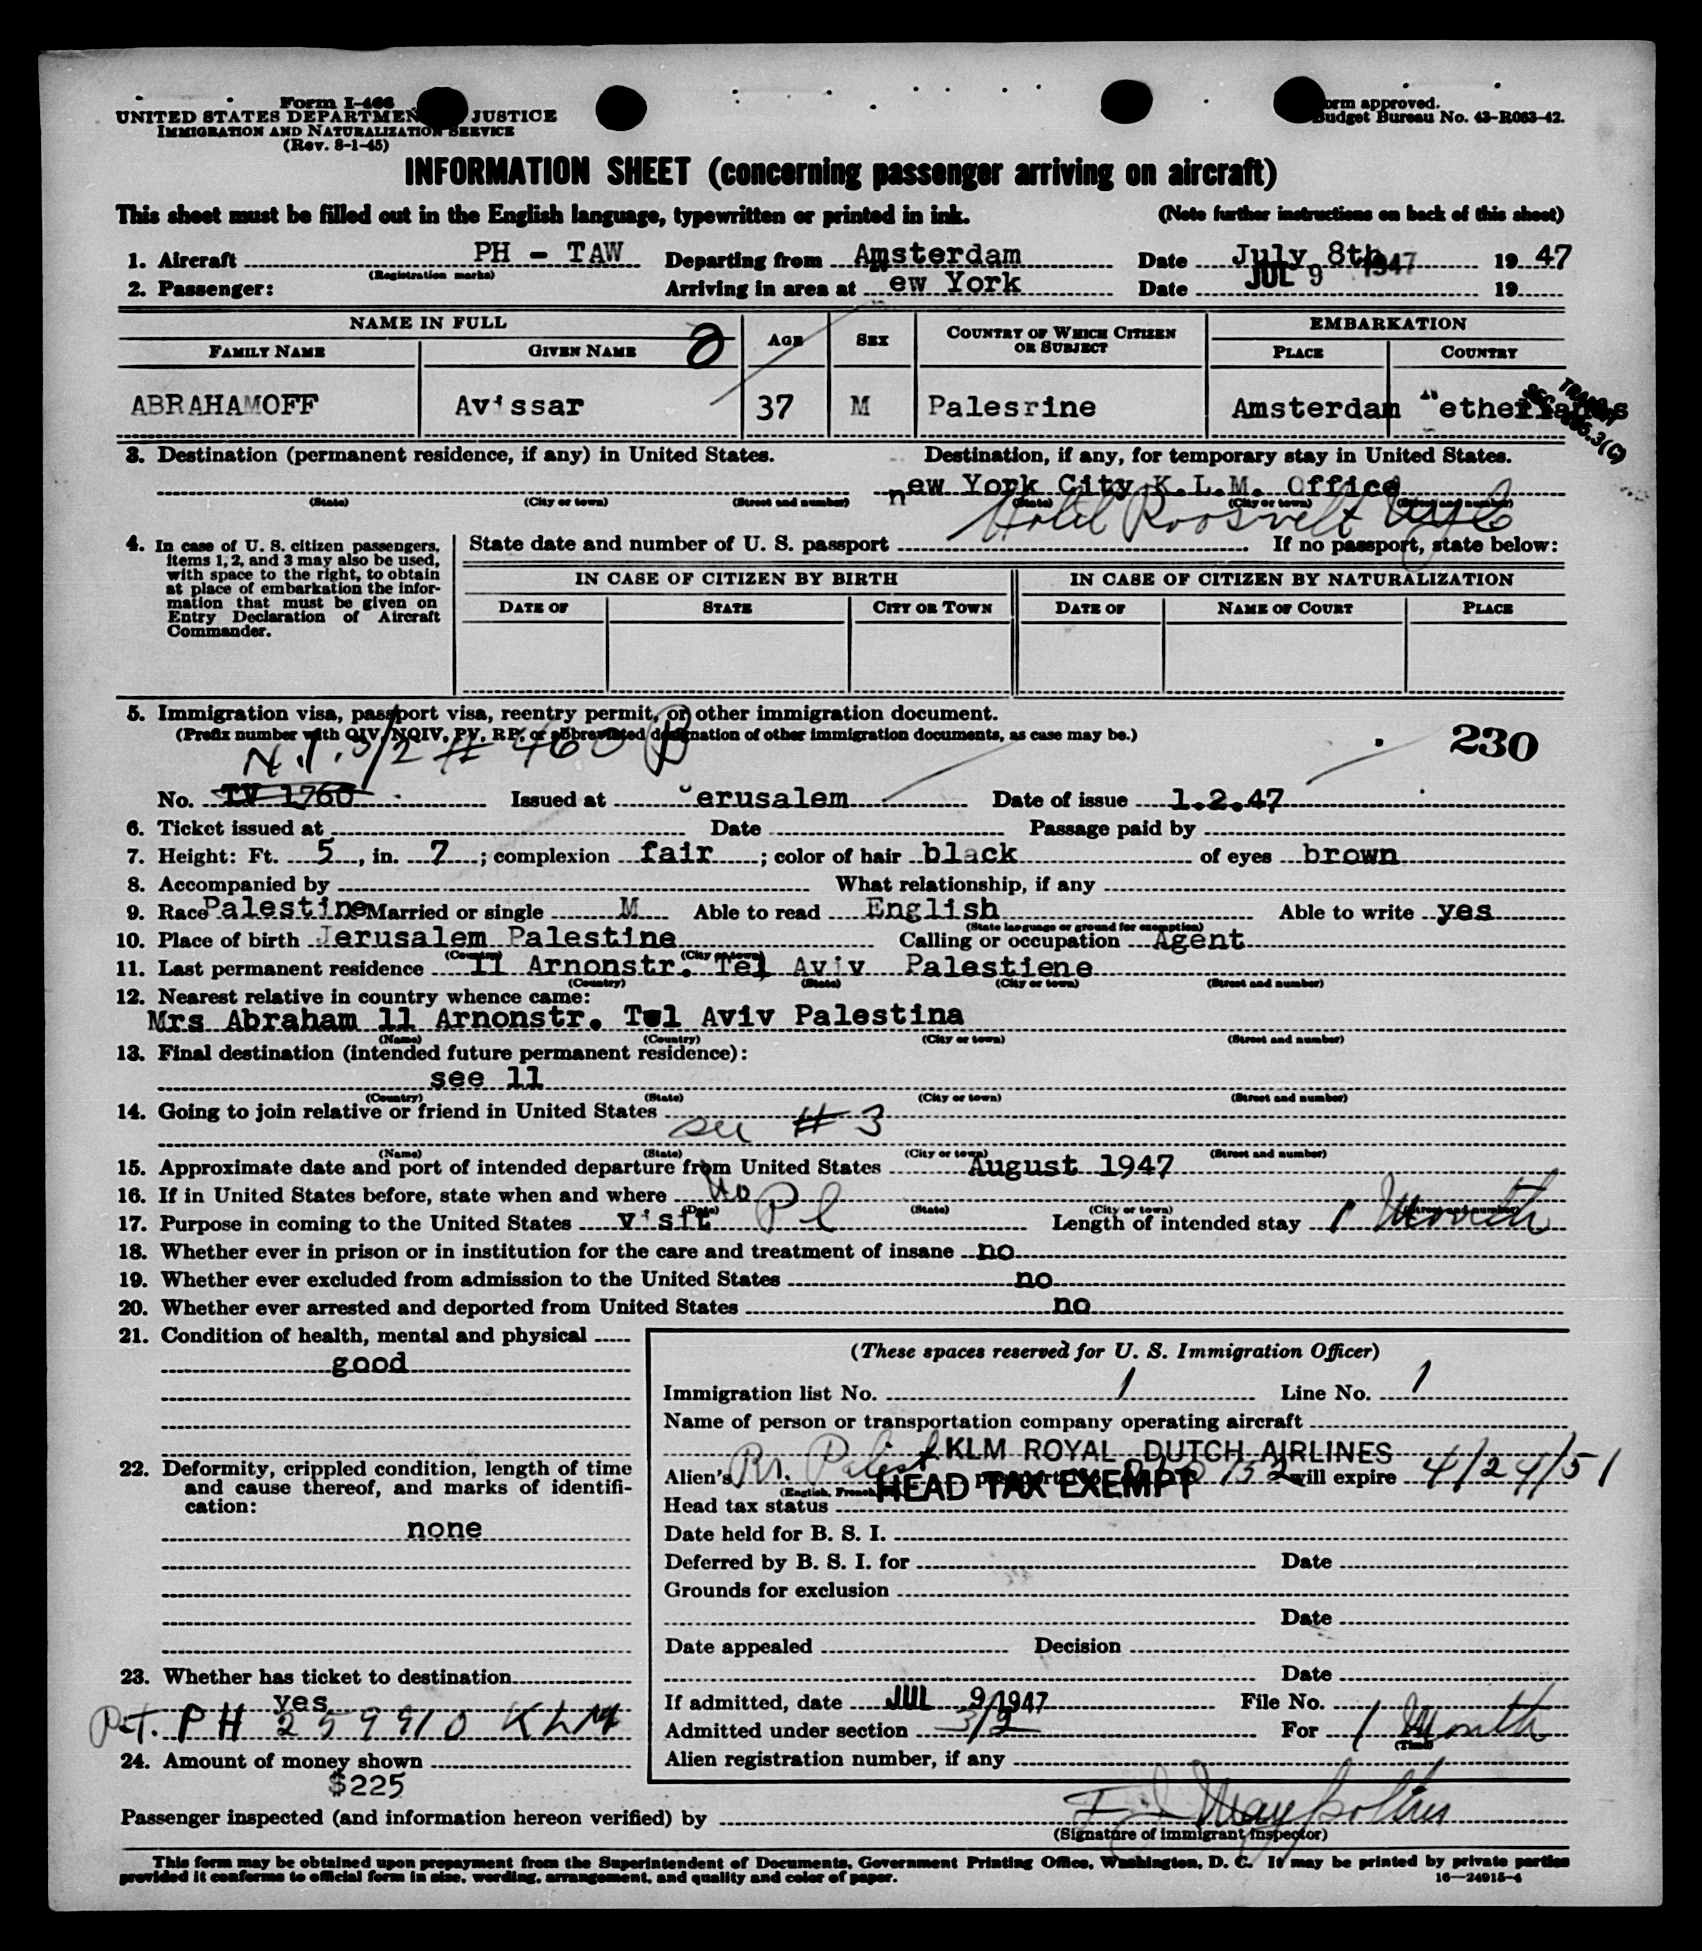 Form I-466
UNITED STATES DEPARTMENT JUSTICE
IMMIGRATION AND NATURALIZATION SERVICE
(Rev. 8-1-45)
Form approved.
Budget Bureau No. 43-R063-42.
INFORMATION SHEET (concerning passenger arriving on aircraft)
This sheet must be filled out in the English language, typewritten or printed in ink. (Note further instructions on back of this sheet)
1. Aircraft PH - TAW Departing from Amsterdam Date July 8th 1947
(Registration marks)
2. Passenger: Arriving in area at New York Date JUL 9 1947 19
NAME IN FULL AGE SEX COUNTRY OF WHICH CITIZEN OR SUBJECT EMBARKATION
FAMILY NAME GIVEN NAME PLACE COUNTRY
ABRAHAMOFF Avissar 37 M Palesrine Amsterdam Netherlands
3. Destination (permanent residence, if any) in United States. Destination, if any, for temporary stay in United States.
new York City K.L.M. Office
(State) (City or town) (Street and number) (State) (City or town) (Street and number)
Hotel Roosevelt NYC
4. In case of U. S. citizen passengers, items 1, 2, and 3 may also be used, with space to the right, to obtain at place of embarkation the information that must be given on Entry Declaration of Aircraft Commander.
State date and number of U. S. passport If no passport, state below:
IN CASE OF CITIZEN BY BIRTH IN CASE OF CITIZEN BY NATURALIZATION
DATE OF STATE CITY OR TOWN DATE OF NAME OF COURT PLACE
5. Immigration visa, passport visa, reentry permit, or other immigration document.
(Prefix number with QIV, NQIV, PV, RP, or abbreviated designation of other immigration documents, as case may be.)
230
N.I. 3/2 # 460
No. TV 1760 Issued at Jerusalem Date of issue 1.2.47
6. Ticket issued at Date Passage paid by
7. Height: Ft. 5, in. 7; complexion fair; color of hair black of eyes brown
8. Accompanied by What relationship, if any
9. Race Palestine Married or single M Able to read English Able to write yes
(State language or ground for exemption)
10. Place of birth Jerusalem Palestine Calling or occupation Agent
(Country) (City or town)
11. Last permanent residence 11 Arnonstr. Tel Aviv Palestiene
(Country) (State) (City or town) (Street and number)
12. Nearest relative in country whence came:
Mrs Abraham 11 Arnonstr. Tel Aviv Palestina
(Name) (Country) (City or town) (Street and number)
13. Final destination (intended future permanent residence):
see 11
(Country) (State) (City or town) (Street and number)
14. Going to join relative or friend in United States
see # 3
(Name) (State) (City or town) (Street and number)
15. Approximate date and port of intended departure from United States August 1947
16. If in United States before, state when and where No
(Date) (State) (City or town) (Street and number)
17. Purpose in coming to the United States visit Pl Length of intended stay 1 Month
18. Whether ever in prison or in institution for the care and treatment of insane no
19. Whether ever excluded from admission to the United States no
20. Whether ever arrested and deported from United States no
21. Condition of health, mental and physical
good
22. Deformity, crippled condition, length of time and cause thereof, and marks of identification:
none
23. Whether has ticket to destination
yes
PH 259910 KLM
24. Amount of money shown
$225
(These spaces reserved for U. S. Immigration Officer)
Immigration list No. 1 Line No. 1
Name of person or transportation company operating aircraft
KLM ROYAL DUTCH AIRLINES
Alien's Palest will expire 4/24/51
(English, French,
HEAD TAX EXEMPT
Head tax status
Date held for B. S. I.
Deferred by B. S. I. for Date
Grounds for exclusion
Date
Date appealed Decision
Date
If admitted, date JUL 9 1947 File No.
Admitted under section 3/2 For 1 Month
(Time)
Alien registration number, if any
Passenger inspected (and information hereon verified) by
(Signature of immigrant inspector)
This form may be obtained upon prepayment from the Superintendent of Documents, Government Printing Office, Washington, D. C. It may be printed by private parties
provided it conforms to official form in size, wording, arrangement, and quality and color of paper. 16—24915-4